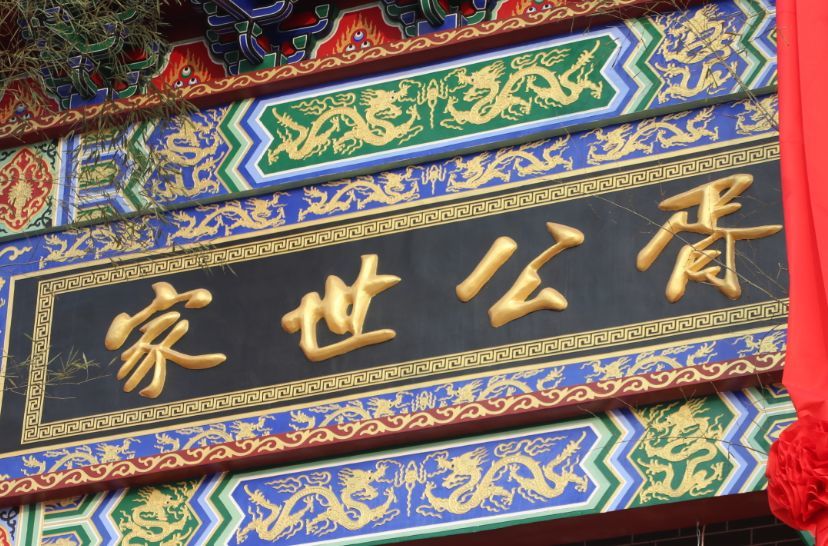 胥公世家